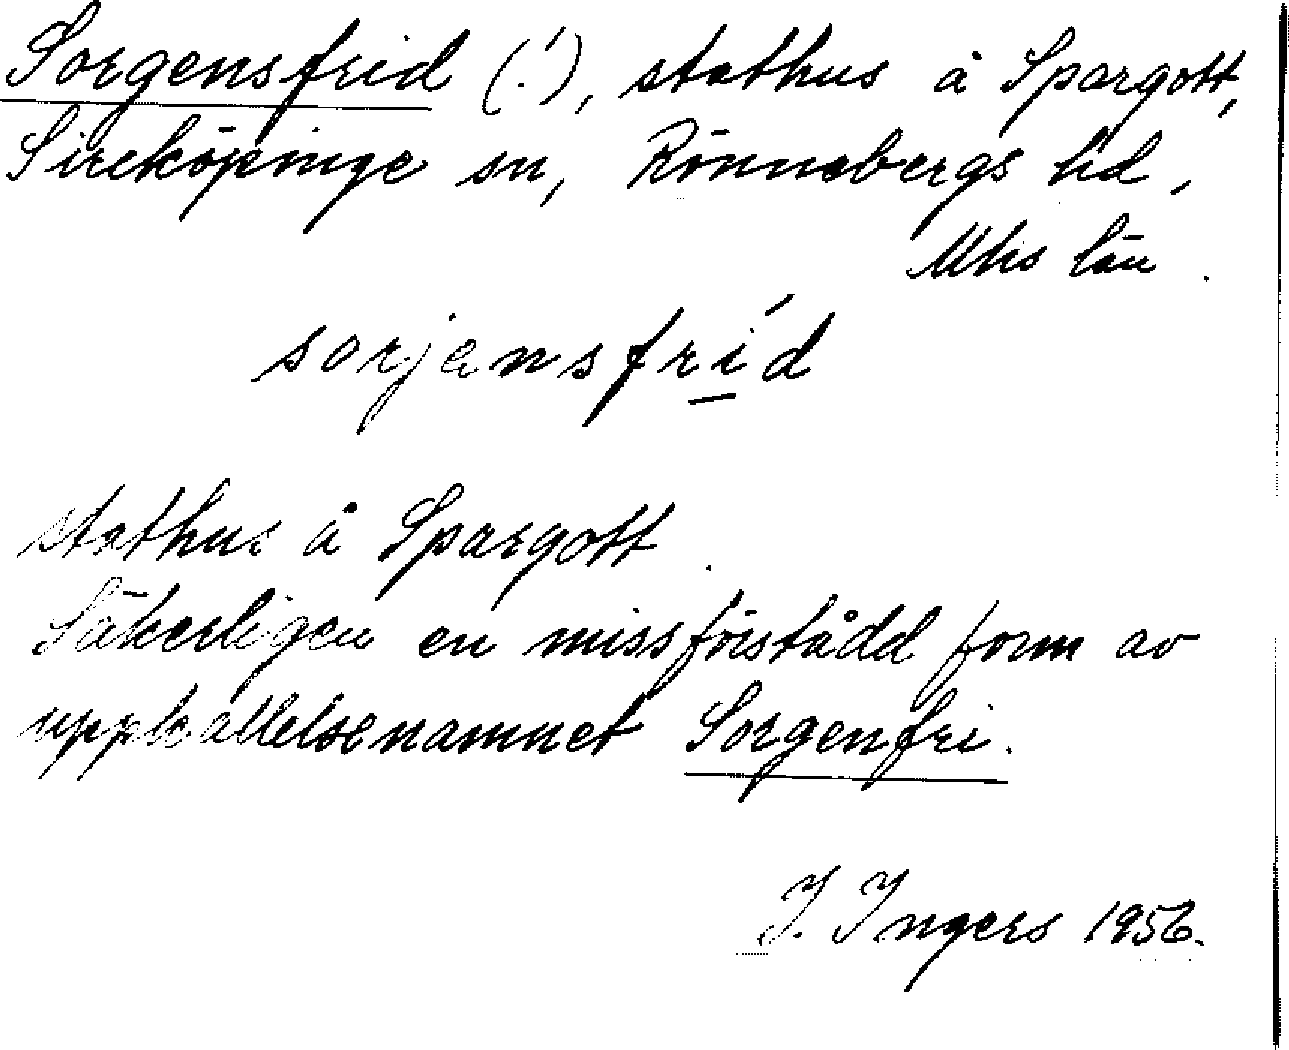 Sorgensfrid (!), stathus å Spargott,
Sireköpinge sn, Rönnebergs hd,
Mhs län.
sorjansfrid
stathus å Spargott.
Säkerligen en missförstådd form av
uppkallelsenamnet Sorgenfri.
I. Ingers 1956.